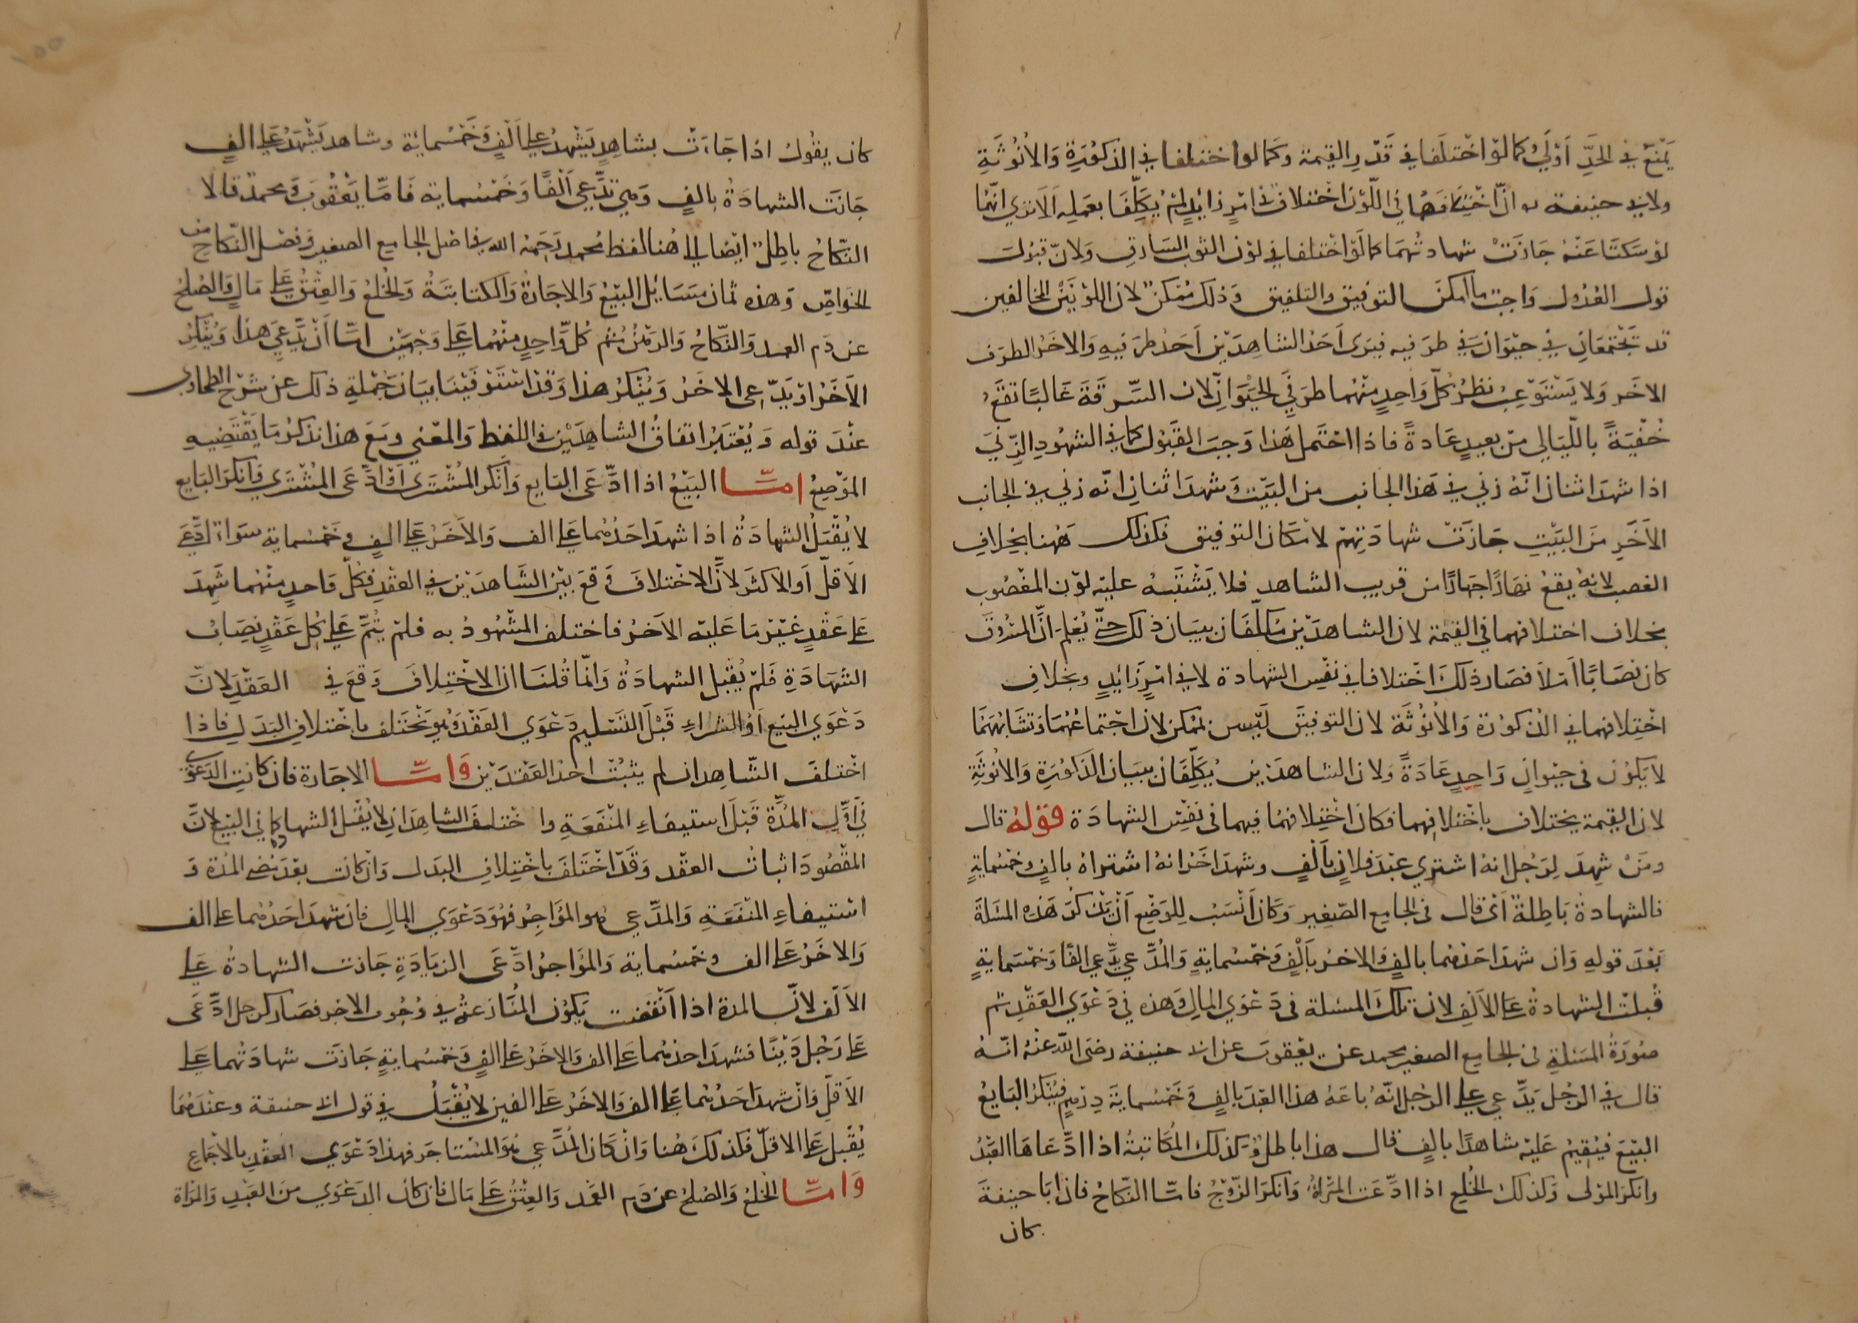 يمنع في الحد اولى كما لو اختلفا في قدر القيمة وكما لو اختلفا في الذكورة والانوثة
ولابي حنيفة ان اختلافهما في اللون اختلاف في امر زايد لم يكلفا بعمله الا ترى انهما
لو سكتا عنه جازت شهادتهما كما لو اختلفا في لون الثوب السارق ولان قبول
قول العدول واجب ما امكن التوفيق والتلفيق وذلك ممكن لان اللونين المخالفين
قد يجتمعان في حيوان في طرفيه فيرى احد الشاهدين احد طرفيه والاخر الطرف
الاخر ولا يستوعب نظر كل واحد منهما طرفي الحيوان لان السرقة غالبا تقع
خفية بالليالي من بعيد عادة فاذا احتمل هذا وجب القبول كما في الشهود الزنى
اذا شهد اثنان انه زنى في هذا الجانب من البيت وشهد اثنان انه زنى في الجانب
الاخر من البيت جازت شهادتهم لامكان التوفيق فكذلك ههنا بخلاف
الغصب لانه يقع نهارا جهارا من قريب الشاهد فلا يشتبه عليه لون المغصوب
بخلاف اختلافهما في القيمة لان الشاهدين مكلفان ببيان ذلك حتى يعلم ان المسروق
كان نصابا ام لا فصار ذلك اختلافا في نفس الشهادة لا في امر زايد وبخلاف
اختلافهما في الذكورة والانوثة لان التوفيق ليس بممكن لان اجتماعهما وتشابههما
لا يكون في حيوان واحد عادة ولان الشاهدين يكلفان ببيان الذكورة والانوثة
لان القيمة يختلاف باختلافهما فكان اختلافهما فيهما في نفس الشهادة قوله قال
ومن شهد لرجل انه اشترى عبد فلان بالف وشهد اخر انه اشتراه بالف وخمسماية
فالشهادة باطلة اي قال في الجامع الصغير وكان انسب للوضع ان يذكر هذه المسئلة
بعد قوله وان شهد احدهما بالف والاخر بالف وخمسماية والمدعي يدعي الفا وخمسماية
قبلت الشهادة على الالف لان تلك المسئلة في دعوى المال وهذه في دعوى العقد ثم
صورة المسئلة في الجامع الصغير محمد عن يعقوب عن ابي حنيفة رضى الله عنه انه
قال في الرجل يدعي على الرجل انه باعه هذا العبد بالف وخمسماية درهم فينكر البايع
البيع فيقيم عليه شاهدا بالف قال هذا باطل وكذلك المكاتبة اذا ادعاها العبد
وانكر المولى وكذلك الخلع اذا ادعت المراة وانكر الزوج فاما النكاح فان ابا حنيفة
كان
كان يقول اذا جاءت بشاهد يشهد على الف وخمسماية وشاهد يشهد على الف
جازت الشهادة بالف وهي تدعي الفا وخمسماية فاما يعقوب ومحمد قالا
النكاح باطل ايضا الى هنا لفظ محمد رحمه الله في اصل الجامع الصغير وفصل النكاح من
الخواص وهذه ثمان مسايل البيع والاجارة والكتابة والخلع والعتق على مال والصلح
عن دم العمد والنكاح والرهن ثم كل واحد منهما على وجهين اما ان يدعي هذا وينكر
الاخر او يدعي الاخر وينكر هذا وقد استوفينا بيان جملة ذلك عن شرح الطحاوي
عند قوله ويعتبر اتفاق الشاهدين في اللفظ والمعنى ومع هذا نذكر ما يقتضيه
الموضع اما البيع اذا ادعى البايع وانكر المشتري او ادعى المشتري وانكر البايع
لا يقبل الشهادة اذا شهد احدهما على الف والاخر على الف وخمسماية سواء ادعى
الاقل او الاكثر لان الاختلاف وقع بين الشاهدين في العقد فكل واحد منهما شهد
على عقد غير ما عليه الاخر فاختلف المشهود به فلم يتم على كل عقد نصاب
الشهادة فلم يقبل الشهادة وانما قلنا ان الاختلاف وقع في العقد لان
دعوى البيع او الشراء قبل التسليم دعوى العقد وهو يختلف باختلاف البدل فاذا
اختلف الشاهدان لم يثبت احد العقدين واما الاجارة فان كانت الدعوى
في اول المدة قبل استيفاء المنفعة واختلف الشاهدان لا يقبل الشهادة كما في البيع لان
المقصود اثبات العقد وقد اختلف باختلاف البدل وان كانت بعد مضي المدة و
استيفاء المنفعة والمدعي هو المؤاجر فهو دعوى المال فان شهد احدهما على الف
والاخر على الف وخمسماية والمؤاجر ادعى الزيادة جازت الشهادة على
الالف لان المدة اذا انقضت يكون المنازعة في وجوب الاجر فصار كرجل ادعى
على رجل دينا فشهد احدهما على الف والاخر على الف وخمسماية جازت شهادتهما على
الاقل وان شهد احدهما على الف والاخر على الفين لا يقبل في قول ابي حنيفة وعندهما
يقبل على الاقل فكذلك هنا وان كان المدعي هو المستاجر فهذا دعوى العقد بالاجماع
واما الخلع والصلح عن دم العمد والعتق على مال فان كان الدعوى من العبد والمراة